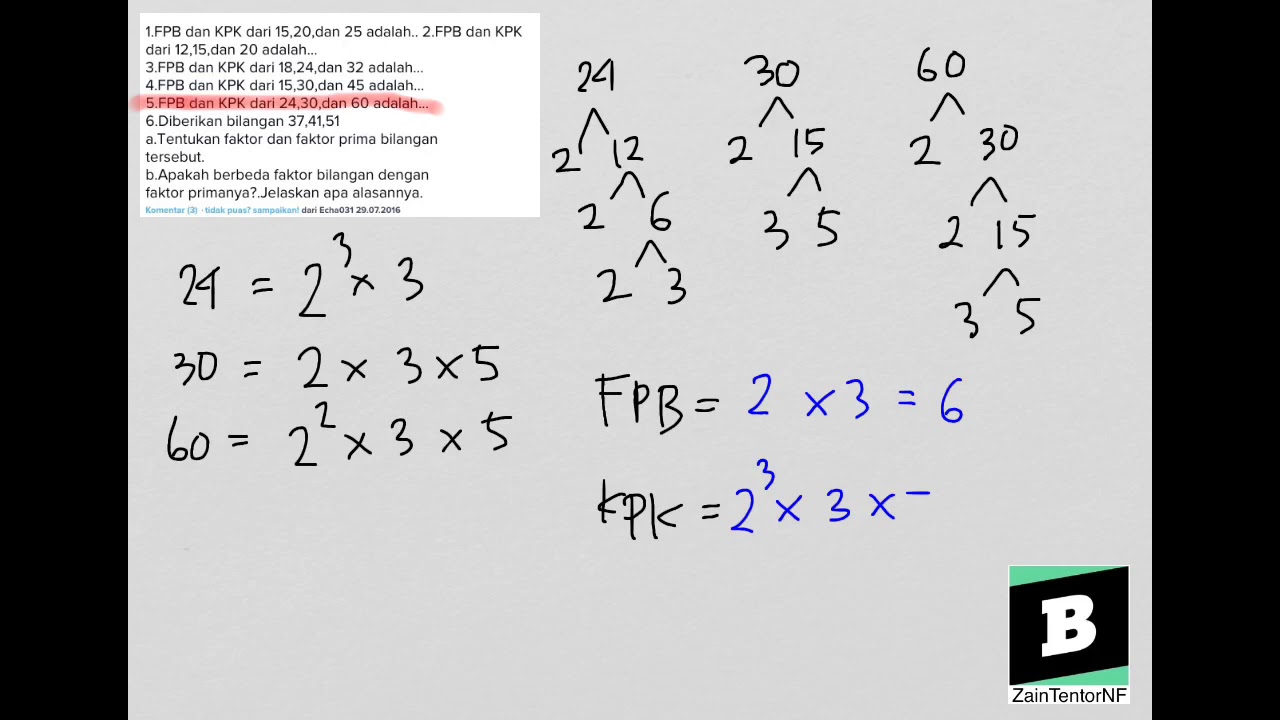 1.FPB dan KPK dari 15,20,dan 25 adalah.. 2.FPB dan KPK
dari 12,15,dan 20 adalah...
3.FPB dan KPK dari 18,24,dan 32 adalah...
4.FPB dan KPK dari 15,30,dan 45 adalah...
5.FPB dan KPK dari 24,30,dan 60 adalah...
6.Diberikan bilangan 37,41,51
a.Tentukan faktor dan faktor prima bilangan
tersebut.
b.Apakah berbeda faktor bilangan dengan
faktor primanya?.Jelaskan apa alasannya.
Komentar (3) · tidak puas? sampaikan! dari Echa031 29.07.2016
24 = 2³ × 3
30 = 2 × 3 × 5
60 = 2² × 3 × 5
24
2 12
2 6
2 3
30
2 15
3 5
60
2 30
2 15
3 5
FPB = 2 × 3 = 6
KPK = 2³ × 3 ×
B
ZainTentorNF